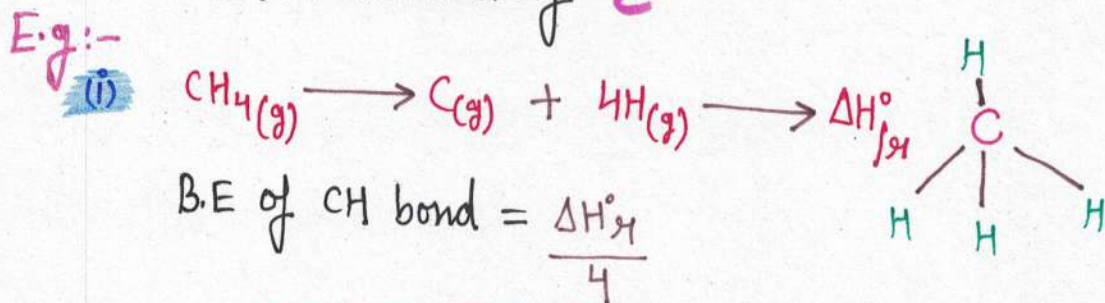 E.g:-
(i) CH₄(g) ⟶ C(g) + 4H(g) ⟶ ΔH°r
H
C
H H H
B.E of CH bond = ΔH°r
4